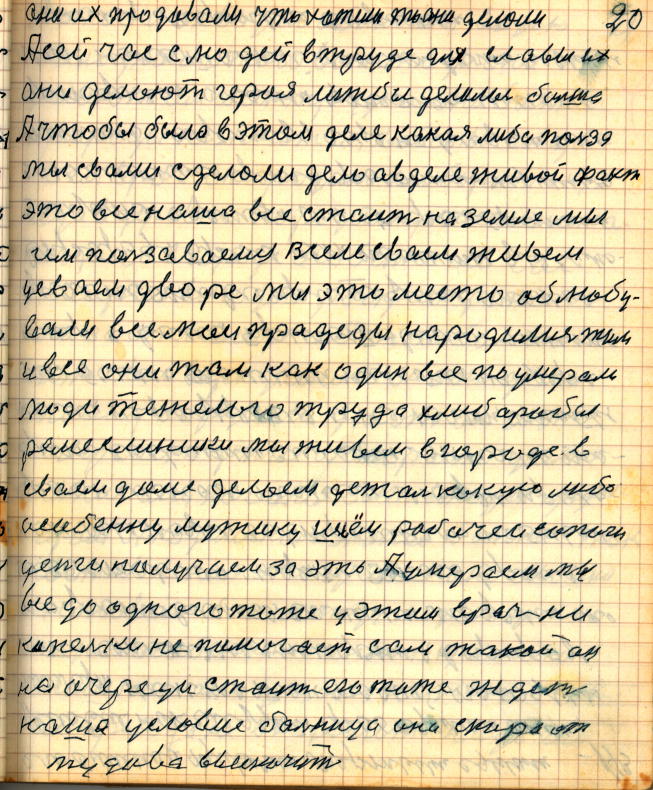 они их продавали что хотели то они делоли 20
А сей час с людей в труде для славы их
они делоют героя
А чтобы было в этом деле какая либо польза
мы свами сделоли дело в деле живой факт
это все наша все стоит на земле мы
им ползаваемы в селе своем живем
мы это место облюбу-
вали все мои прадеды народились жили
и все они там как один все по умерали
люди тежелого труда хлибаробы
ремеслиники мы живем в городе в
своем доме делоем детал кокую либо
особенну мужику шьём рабочеи сапоги
денги получаем за это А умераем мы
все до одного тоже у этим врач ни
капельки не помогает сам такой он
на очереди стоит его тоже ждет
наша условие болница она скора от
тудова выскочит